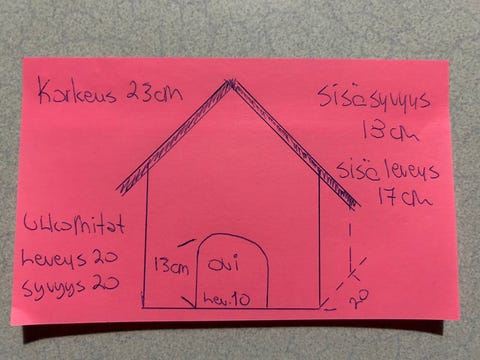 Korkeus 23cm
Sisäsyvyys
18cm
Sisäleveys
17cm
Ulkomitat
Leveys 20
Syvyys 20
13cm
Ovi
Lev. 10
20